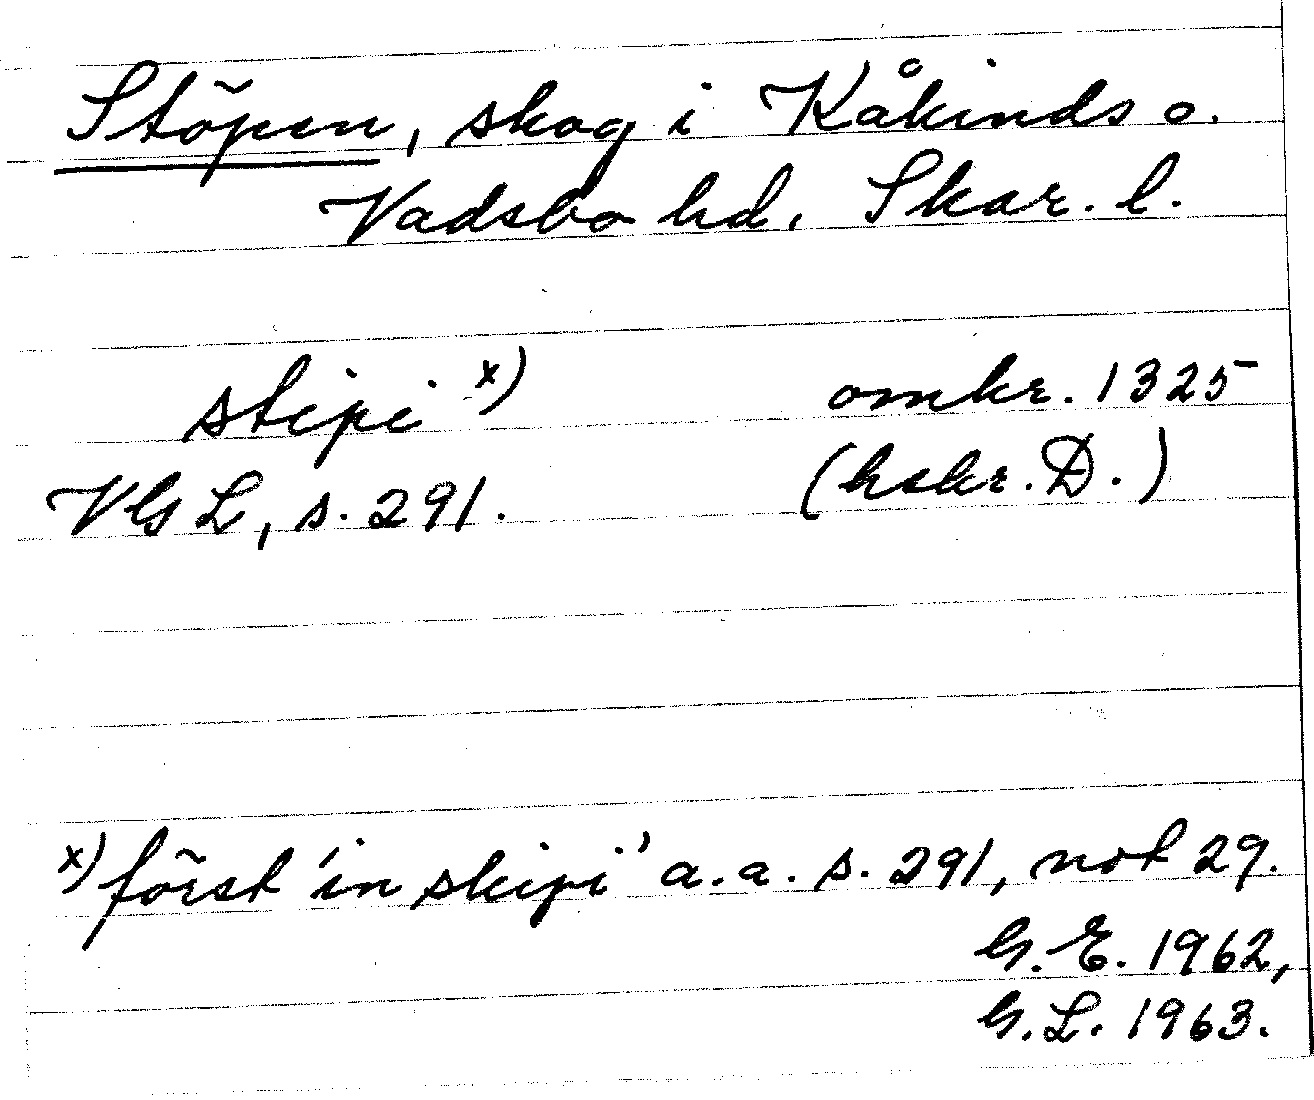 Stöpen, skog i Kåkinds o.
Vadsbo hd, Skar. l.
stipi x) omkr. 1325
VGL, s. 291. (hskr. D.)
x) först 'in skipi' a.a. s. 291, not 29.
G.E. 1962,
G.L. 1963.